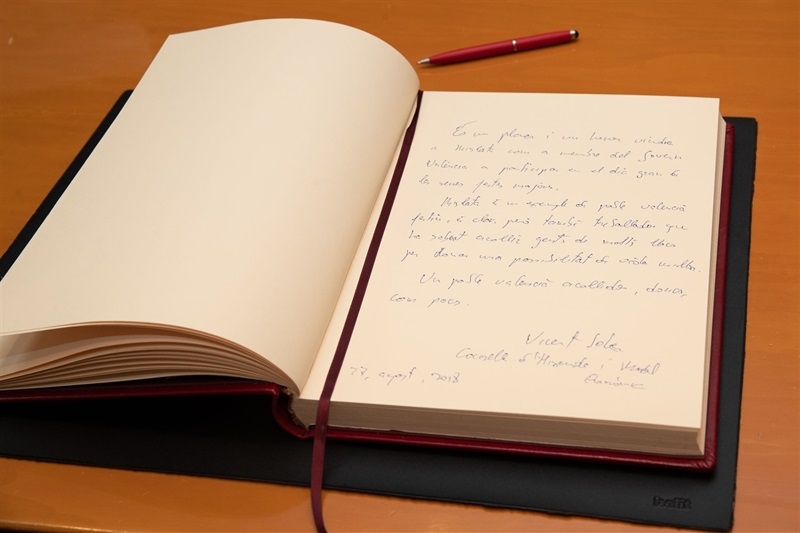 És un plaer i un honor vindre
a Mislata com a membre del Govern
Valencià a participar en el dia gran de
les seues festes majors.
Mislata és un exemple de poble valencià
festiu, és clar, però també treballador que
ha sabut acollir gents de molts llocs
per donar una possibilitat de vida millor.
Un poble valencià acollidor, doncs,
com pocs.
Vicent Soler
Conseller d'Hisenda i Model
Econòmic
27, agost, 2018